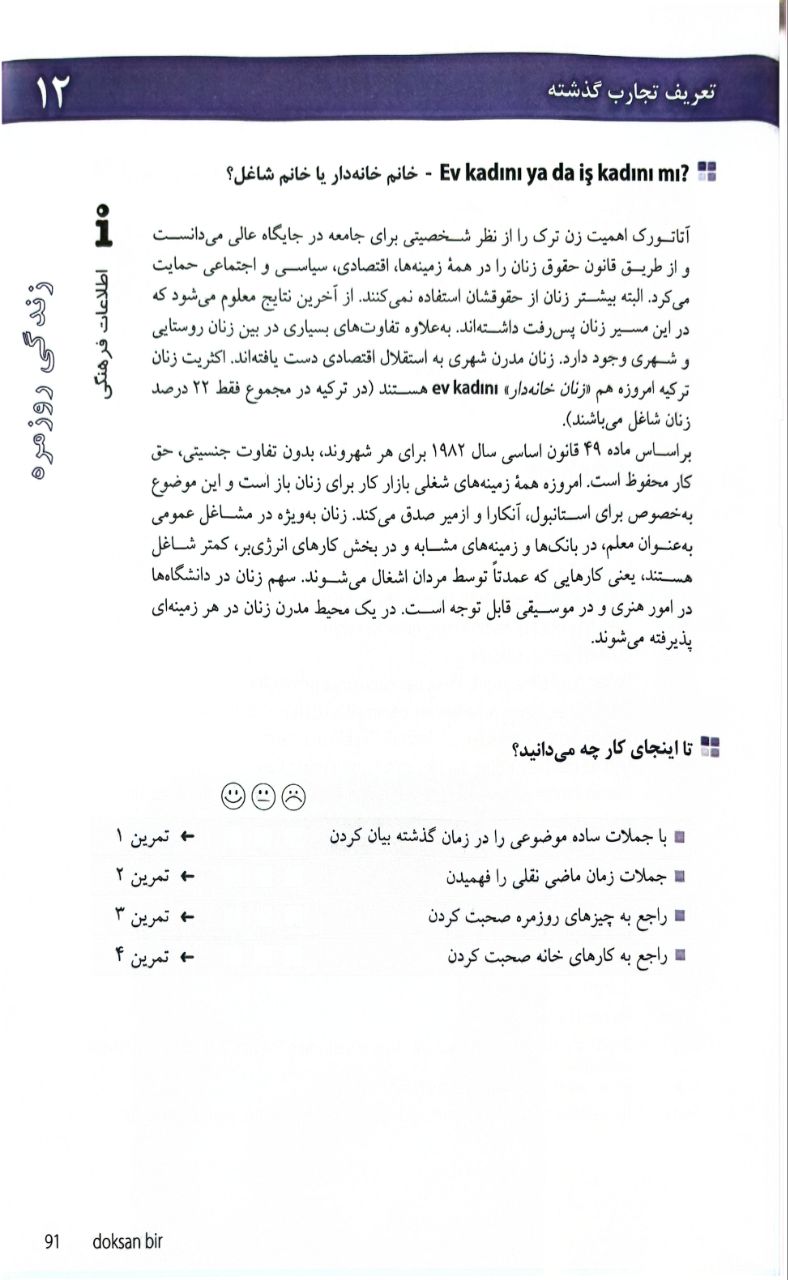 تعریف تجارب گذشته
۱۲
Ev kadını ya da iş kadını mı? - خانم خانه‌دار یا خانم شاغل؟
اطلاعات فرهنگی
زندگی روزمره
آتاتورک اهمیت زن ترک را از نظر شخصیتی برای جامعه در جایگاه عالی می‌دانست
و از طریق قانون حقوق زنان را در همهٔ زمینه‌ها، اقتصادی، سیاسی و اجتماعی حمایت
می‌کرد. البته بیشتر زنان از حقوقشان استفاده نمی‌کنند. از آخرین نتایج معلوم می‌شود که
در این مسیر زنان پس‌رفت داشته‌اند. به‌علاوه تفاوت‌های بسیاری در بین زنان روستایی
و شهری وجود دارد. زنان مدرن شهری به استقلال اقتصادی دست یافته‌اند. اکثریت زنان
ترکیه امروزه هم «زنان خانه‌دار» ev kadını هستند (در ترکیه در مجموع فقط ۲۲ درصد
زنان شاغل می‌باشند).
براساس ماده ۴۹ قانون اساسی سال ۱۹۸۲ برای هر شهروند، بدون تفاوت جنسیتی، حق
کار محفوظ است. امروزه همهٔ زمینه‌های شغلی بازار کار برای زنان باز است و این موضوع
به‌خصوص برای استانبول، آنکارا و ازمیر صدق می‌کند. زنان به‌ویژه در مشاغل عمومی
به‌عنوان معلم، در بانک‌ها و زمینه‌های مشابه و در بخش کارهای انرژی‌بر، کمتر شاغل
هستند، یعنی کارهایی که عمدتاً توسط مردان اشغال می‌شوند. سهم زنان در دانشگاه‌ها
در امور هنری و در موسیقی قابل توجه است. در یک محیط مدرن زنان در هر زمینه‌ای
پذیرفته می‌شوند.
تا اینجای کار چه می‌دانید؟
با جملات ساده موضوعی را در زمان گذشته بیان کردن ← تمرین ۱
جملات زمان ماضی نقلی را فهمیدن ← تمرین ۲
راجع به چیزهای روزمره صحبت کردن ← تمرین ۳
راجع به کارهای خانه صحبت کردن ← تمرین ۴
91 doksan bir